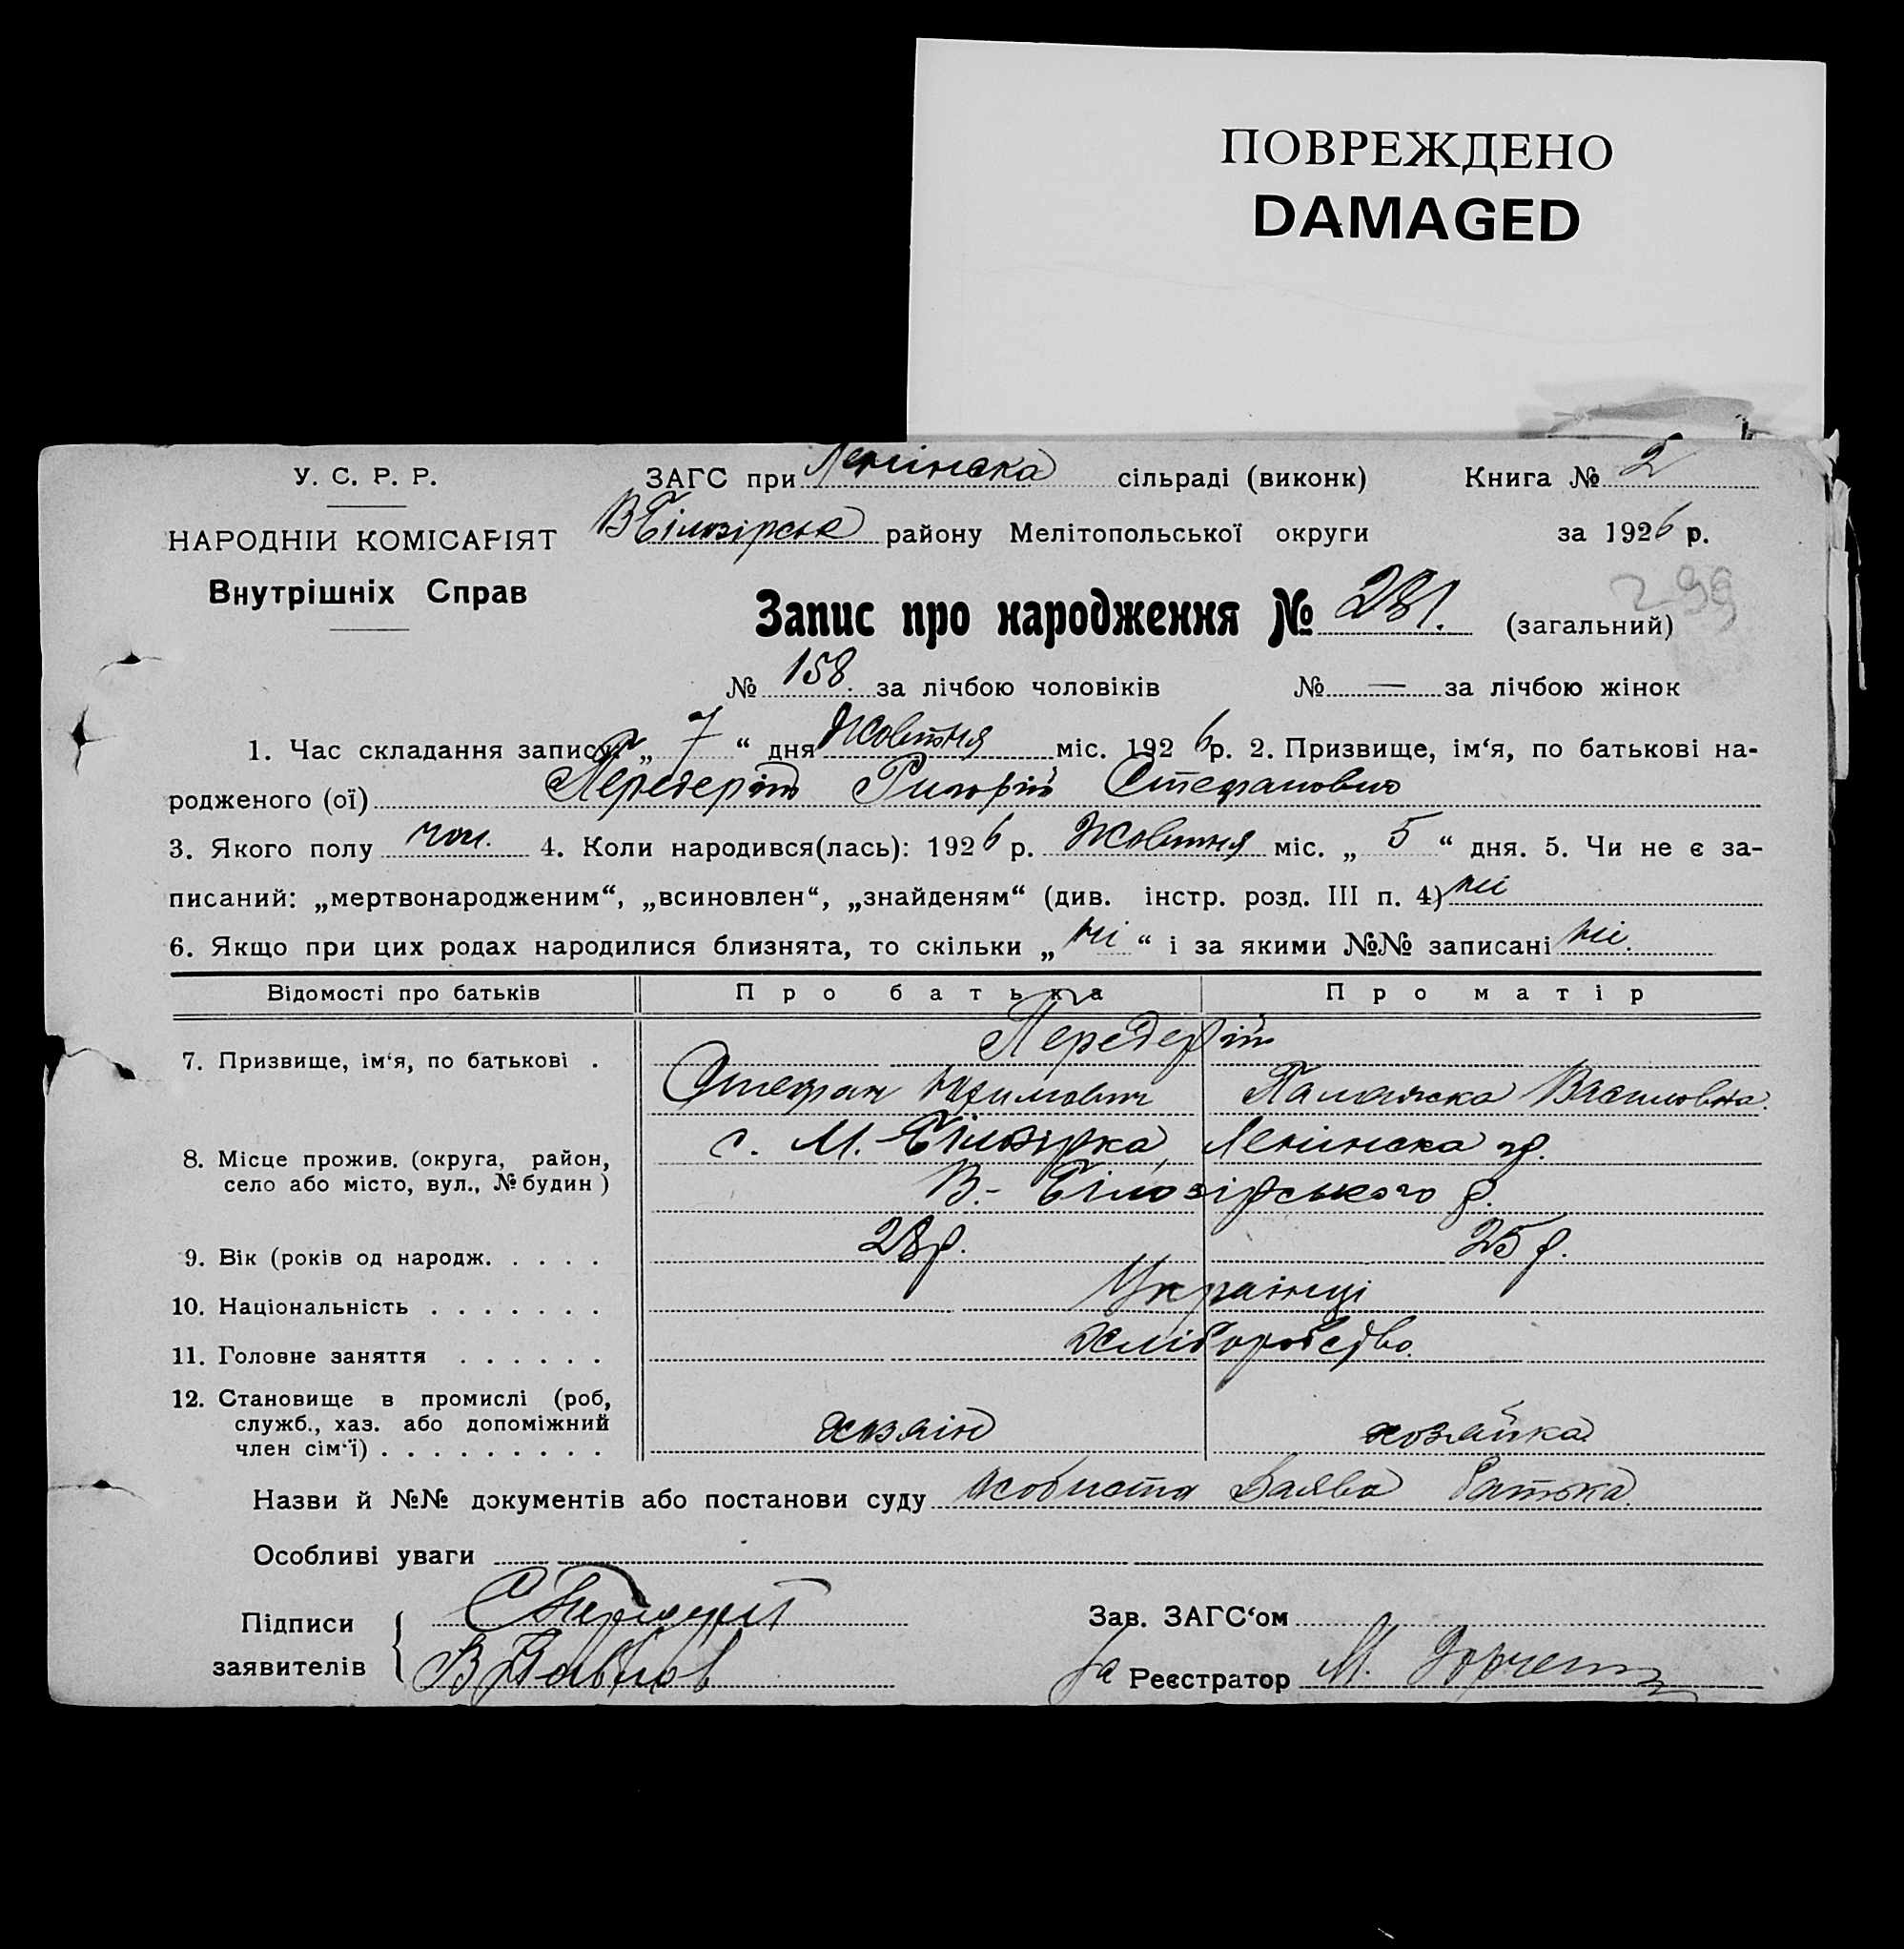 ПОВРЕЖДЕНО
DAMAGED
У. С. Р. Р.
НАРОДНІЙ КОМІСАРІЯТ
Внутрішніх Справ
ЗАГС при Ленінска сільраді (виконк) Книга № 2
В Білозірск району Мелітопольської округи за 1926 р.
299
Запис про народження № 281. (загальний)
№ 158. за лічбою чоловіків № — за лічбою жінок
1. Час складання запису: „ 7 “ дня Жовтня міс. 1926 р. 2. Призвище, ім‘я, по батькові на-
родженого (ої) Передерій Григорій Стефанович
3. Якого полу чол. 4. Коли народився(лась): 1926 р. Жовтня міс. „ 5 “ дня. 5. Чи не є за-
писаний: „мертвонародженим“, „всиновлен“, „знайденям“ (див. інстр. розд. III п. 4) ні
6. Якщо при цих родах народилися близнята, то скільки „ ні “ і за якими №№ записані ні.
Відомості про батьків Про батька Про матір
7. Призвище, ім‘я, по батькові . Передерій
Стефан Юхимович Палажка Василовна.
8. Місце прожив. (округа, район, село або місто, вул., № будин) с. М.-Білозірка, Ленинска гр.
В.- Білозірського р.
9. Вік (років од народж. . . . . 28 р. 25 р.
10. Національність . . . . . . . Українці
11. Головне заняття . . . . . . Хліборобство.
12. Становище в промислі (роб,
служб., хаз. або допоміжний
член сім‘ї) . . . . . . . . . хозяін хозяйка
Назви й №№ документів або постанови суду особиста заява батька.
Особливі уваги
Підписи
заявителів
С Передерій
В Павлов
Зав. ЗАГС‘ом
За Реєстратор М.